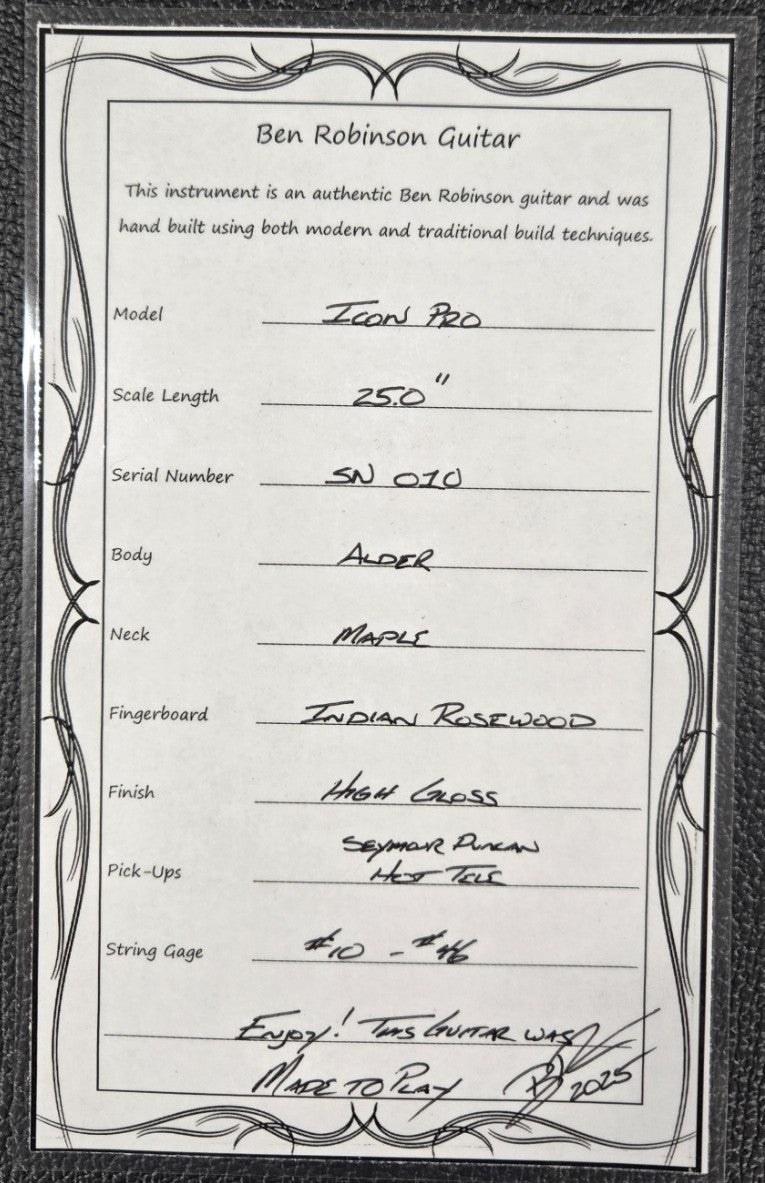 Ben Robinson Guitar
This instrument is an authentic Ben Robinson guitar and was
hand built using both modern and traditional build techniques.
Model ICON PRO
Scale Length 25.0"
Serial Number SN 010
Body ALDER
Neck MAPLE
Fingerboard INDIAN ROSEWOOD
Finish HIGH GLOSS
SEYMOUR DUNCAN
Pick-Ups HOT TELE
String Gage #10 - #46
ENJOY! THIS GUITAR WAS
MADE TO PLAY 2025